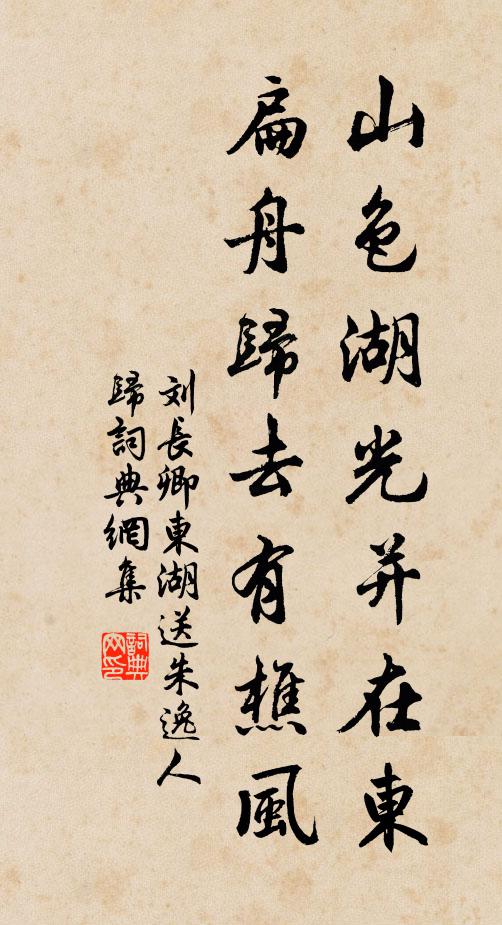 山色湖光并在東
扁舟歸去有樵風
刘長卿東湖送朱逸人
歸詞典網集
詞典网印